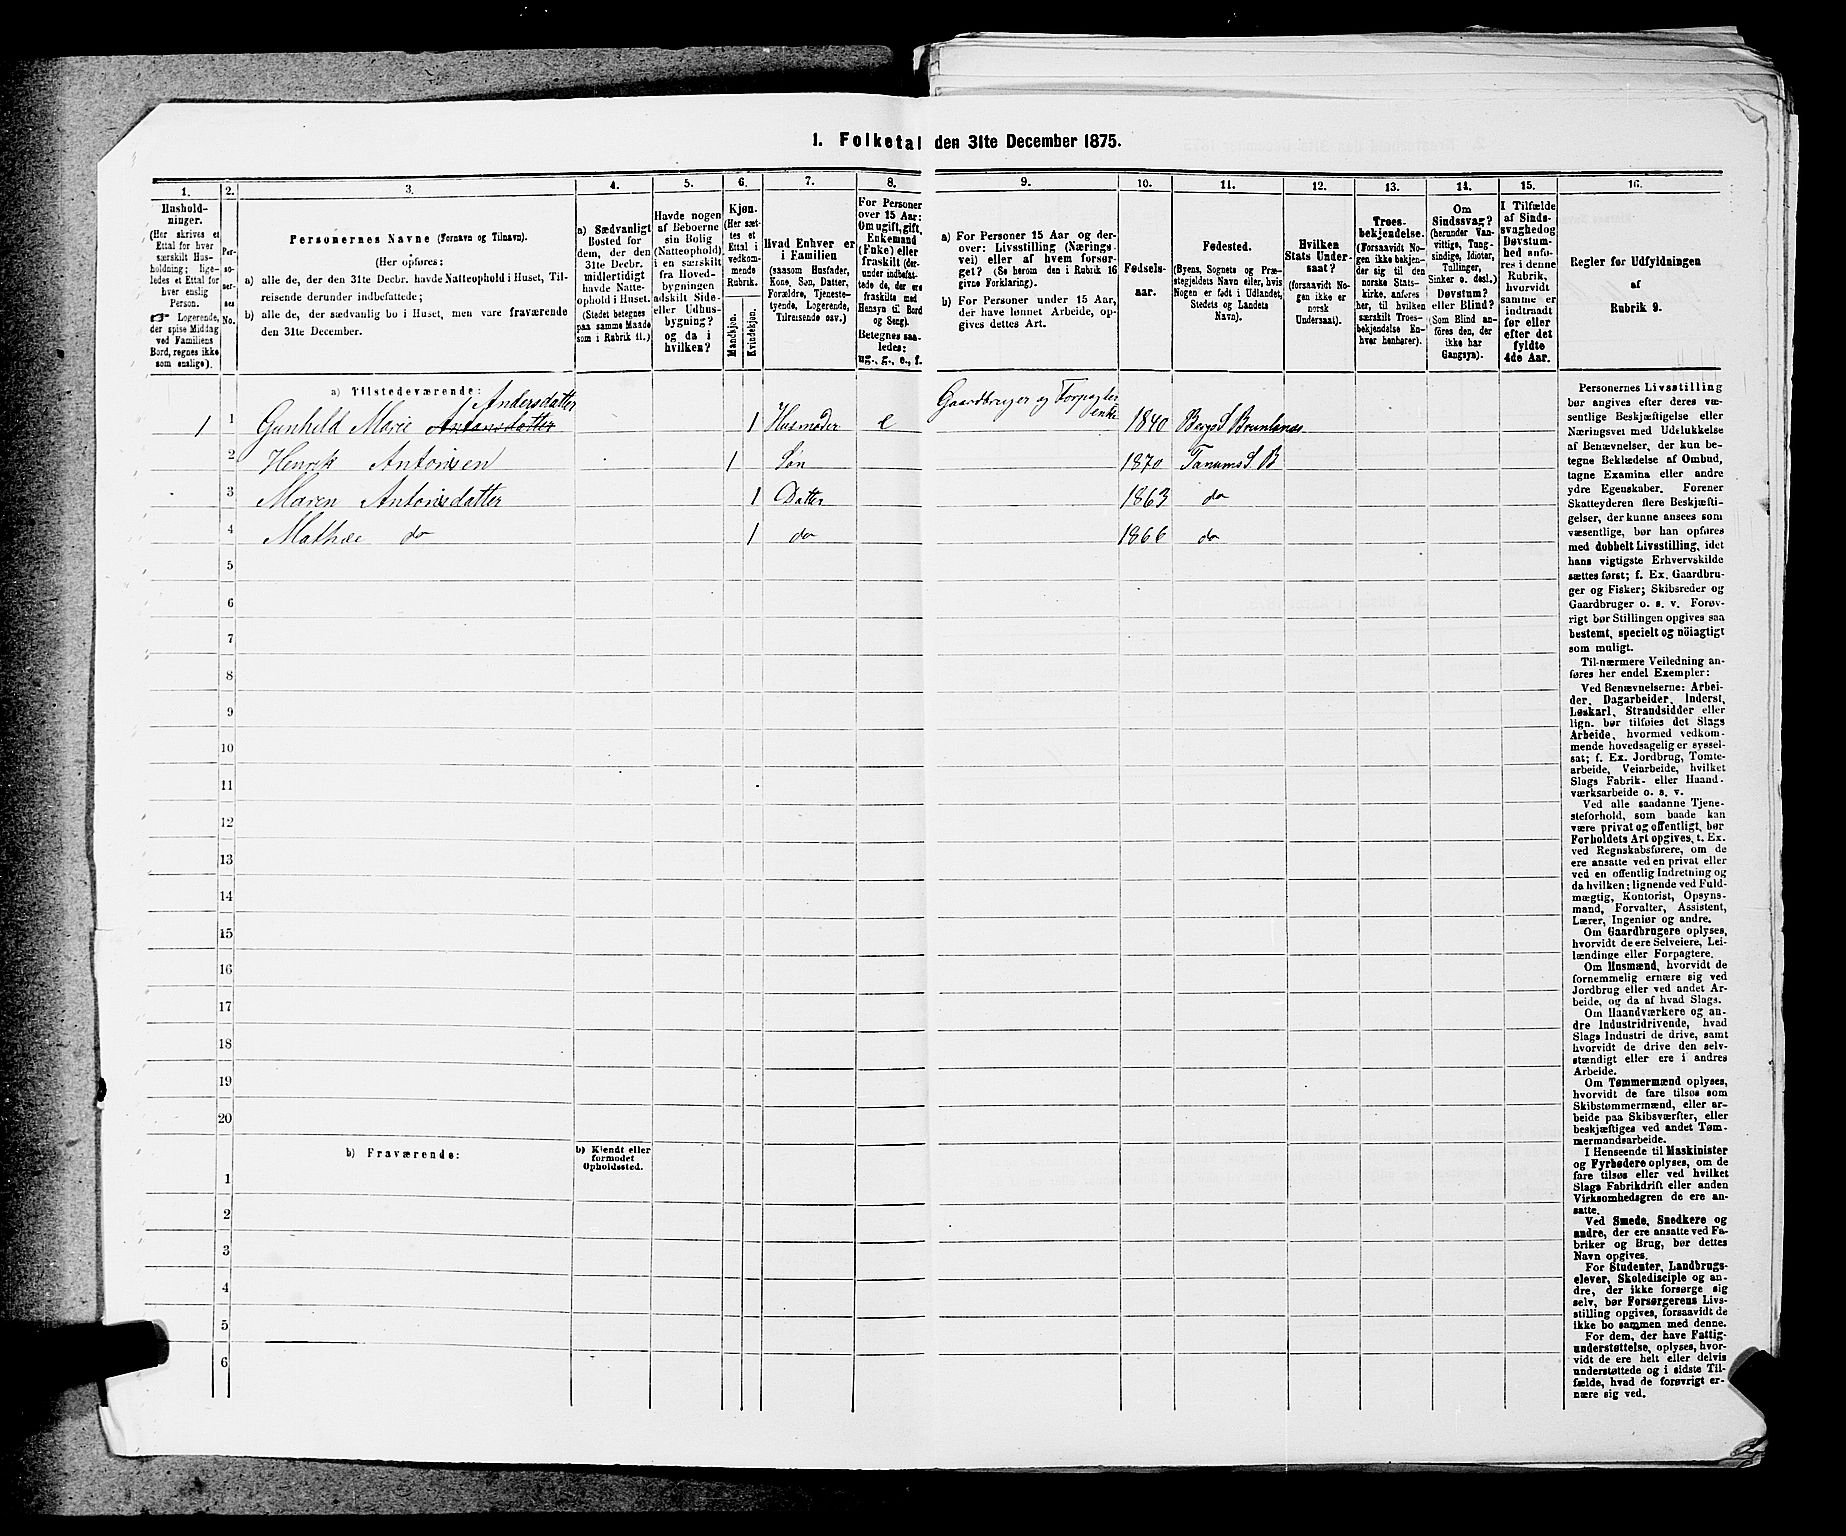 1. Folketal den 31te December 1875.
1.
2.
3.
4.
5.
6.
7.
8.
9.
10.
11.
12.
13.
14.
15.
16.
Hushold-
ninger.
(Her skrives et
Ettal for hver
særskilt Hus-
holdning; lige-
ledes et Ettal for
hver enslig
Person.
☞ Logerende,
der spise Middag
ved Familiens
Bord, regnes ikke
som enslige).
Per-
so-
ner-
nes
No.
Personernes Navne (Fornavn og Tilnavn).
(Her opføres:
a) alle de, der den 31te Decbr. havde Natteophold i Huset, Til-
reisende derunder indbefattede;
b) alle de, der sædvanlig bo i Huset, men vare fraværende
den 31te December.
a) Sædvanligt
Bosted for
dem, der den
31te Decbr.
midlertidigt
havde Natte-
ophold i Huset.
(Stedet betegnes
paa samme Maade
som i Rubrik 11.)
Havde nogen
af Beboerne
sin Bolig
(Natteophold)
i en særskilt
fra Hoved-
bygningen
adskilt Side-
eller Udhus-
bygning?
og da i
hvilken?
Kjøn.
(Her sæt-
tes et
Ettal i
vedkom-
mende
Rubrik.
Mandkjøn.
Kvindekjøn.
Hvad Enhver er
i Familien
(saasom Husfader,
Kone, Søn, Datter,
Forældre, Tjeneste-
tyende, Logerende,
Tilreisende osv.)
For Personer
over 15 Aar:
Om ugift, gift,
Enkemand
(Enke) eller
fraskilt (der-
under indbefat-
tede de, der ere
fraskilte med
Hensyn til Bord
og Seng).
Betegnes saa-
ledes:
ug., g., e., f.
a) For Personer 15 Aar og der-
over: Livsstilling (Nærings-
vei) eller af hvem forsør-
get? (Se herom den i Rubrik 16
givne Forklaring).
b) For Personer under 15 Aar,
der have lønnet Arbeide, op-
gives dettes Art.
Fødsels-
aar.
Fødested.
(Byens, Sognets og Præ-
stegjeldets Navn eller, hvis
Nogen er født i Udlandet,
Stedets og Landets
Navn).
Hvilken
Stats Under-
saat?
(forsaavidt No-
gen ikke er
norsk
Undersaat).
Troes-
bekjendelse.
(Forsaavidt No-
gen ikke bekjen-
der sig til den
norske Stats-
kirke, anføres
her, til hvilken
særskilt Troes-
bekjendelse En-
hver henhører).
Om
Sindssvag?
(herunder Van-
vittige, Tung-
sindige, Idioter,
Tullinger,
Sinker o. desl.)
Døvstum?
eller Blind?
(Som Blind an-
føres den, der
ikke har
Gangsyn).
I Tilfælde
af Sinds-
svaghed og
Døvstum-
hed anfø-
res i denne
Rubrik,
hvorvidt
samme er
indtraadt
før eller
efter det
fyldte
4de Aar.
Regler for Udfyldningen
af
Rubrik 9.
a) Tilstedeværende:
Andersdatter
1 1 Gunhild Marie Antonsdatter 1 Husmoder e Gaardbruger og Forpagter enke 1840 Bergs S Brunlanes
2 Henrik Antonsen 1 Søn 1870 Tanums S. B
3 Maren Antonsdatter 1 Datter 1863 do
4 Mathee do 1 do 1866 do
5
6
7
8
9
10
11
12
13
14
15
16
17
18
19
20
b) Fraværende:
b) Kjendt eller
formodet
Opholdssted.
1
2
3
4
5
6
Personernes Livsstilling
bør angives efter deres væ-
sentlige Beskjæftigelse eller
Næringsvei med Udelukkelse
af Benævnelser, der kun be-
tegne Beklædelse af Ombud,
tagne Examina eller andre
ydre Egenskaber. Forener
Skatteyderen flere Beskjæfti-
gelser, der kunne ansees som
væsentlige, bør han opføres
med dobbelt Livsstilling, idet
hans vigtigste Erhvervskilde
sættes først; f. Ex. Gaardbru-
ger og Fisker; Skibsreder og
Gaardbruger o. s. v. Forøv-
rigt bør Stillingen opgives saa
bestemt, specielt og nöiagtigt
som muligt.
Til nærmere Veiledning an-
føres her endel Exempler:
Ved Benævnelserne: Arbei-
der, Dagarbeider, Inderst,
Løskarl, Strandsidder eller
lign. bør tilføies det Slags
Arbeide, hvormed vedkom-
mende hovedsagelig er syssel-
sat; f. Ex. Jordbrug, Tomte-
arbeide, Veiarbeide, hvilket
Slags Fabrik- eller Haand-
værksarbeide o. s. v.
Ved alle saadanne Tjene-
steforhold, som baade kan
være privat og offentligt, bør
Forholdets Art opgives, t. Ex.
ved Regnskabsførere, om de
ere ansatte ved en privat eller
ved en offentlig Indretning og
da hvilken; lignende ved Fuld-
mægtig, Kontorist, Opsyns-
mand, Forvalter, Assistent,
Lærer, Ingeniør og andre.
Om Gaardbrugere oplyses,
hvorvidt de ere Selveiere, Lei-
lændinge eller Forpagtere.
Om Husmænd, hvorvidt de
fornemmelig ernære sig ved
Jordbrug eller ved andet Ar-
beide, og da af hvad Slags.
Om Haandværkere og an-
dre Industridrivende, hvad
Slags Industri de drive, samt
hvorvidt de drive den selv-
stændigt eller ere i andres
Arbeide.
Om Tømmermænd oplyses,
hvorvidt de fare tilsøs som
Skibstømmermænd, eller ar-
beide paa Skibsværfter, eller
beskjæftiges ved andet Tøm-
mermandsarbeide.
I Henseende til Maskinister
og Fyrbødere oplyses, om de
fare tilsøs eller ved hvilket
Slags Fabrikdrift eller anden
Virksomhedsgren de ere an-
satte.
Ved Smede, Snedkere og
andre, der ere ansatte ved Fa-
briker og Brug, bør dettes
Navn opgives.
For Studenter, Landbrugs-
elever, Skoledisciple og an-
dre, der ikke forsørge sig
selv, bør Forsørgerens Livs-
stilling opgives, forsaavidt de
ikke bo sammen med denne.
For dem, der have Fattig-
understøttelse, oplyses, hvor-
vidt de ere helt eller delvis
understøttede og i sidste Til-
fælde, hvad de forøvrigt er-
nære sig ved.